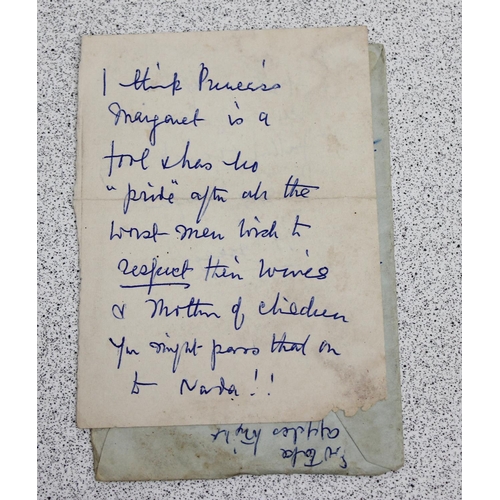 I think Princess
Margaret is a
fool & has no
"pride" after all the
worst men wish to
respect their wives
& Mother of children
You might pass that on
to Nada!!